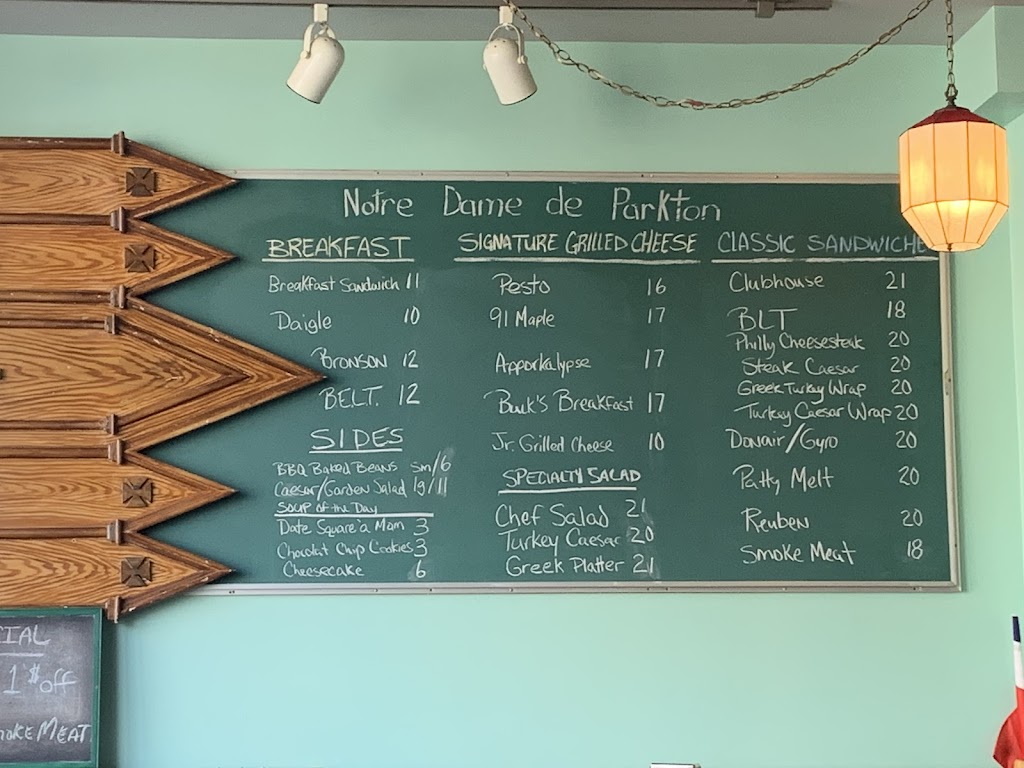 Notre Dame de Parkton
BREAKFAST
Breakfast Sandwich 11
Daigle 10
Bronson 12
B.E.L.T. 12
SIDES
BBQ Baked Beans sm/6
Caesar/Garden Salad lg/11
Soup of the Day
Date Square'a Mom 3
Chocolat Chip Cookies 3
Cheesecake 6
SIGNATURE GRILLED CHEESE
Pesto 16
91 Maple 17
Apporkalypse 17
Buck's Breakfast 17
Jr. Grilled Cheese 10
SPECIALTY SALAD
Chef Salad 21
Turkey Caesar 20
Greek Platter 21
CLASSIC SANDWICHE
Clubhouse 21
BLT 18
Philly Cheesesteak 20
Steak Caesar 20
Greek Turkey Wrap 20
Turkey Caesar Wrap 20
Donair/Gyro 20
Patty Melt 20
Reuben 20
Smoke Meat 18
CIAL
1$ off
MOKE MEAT